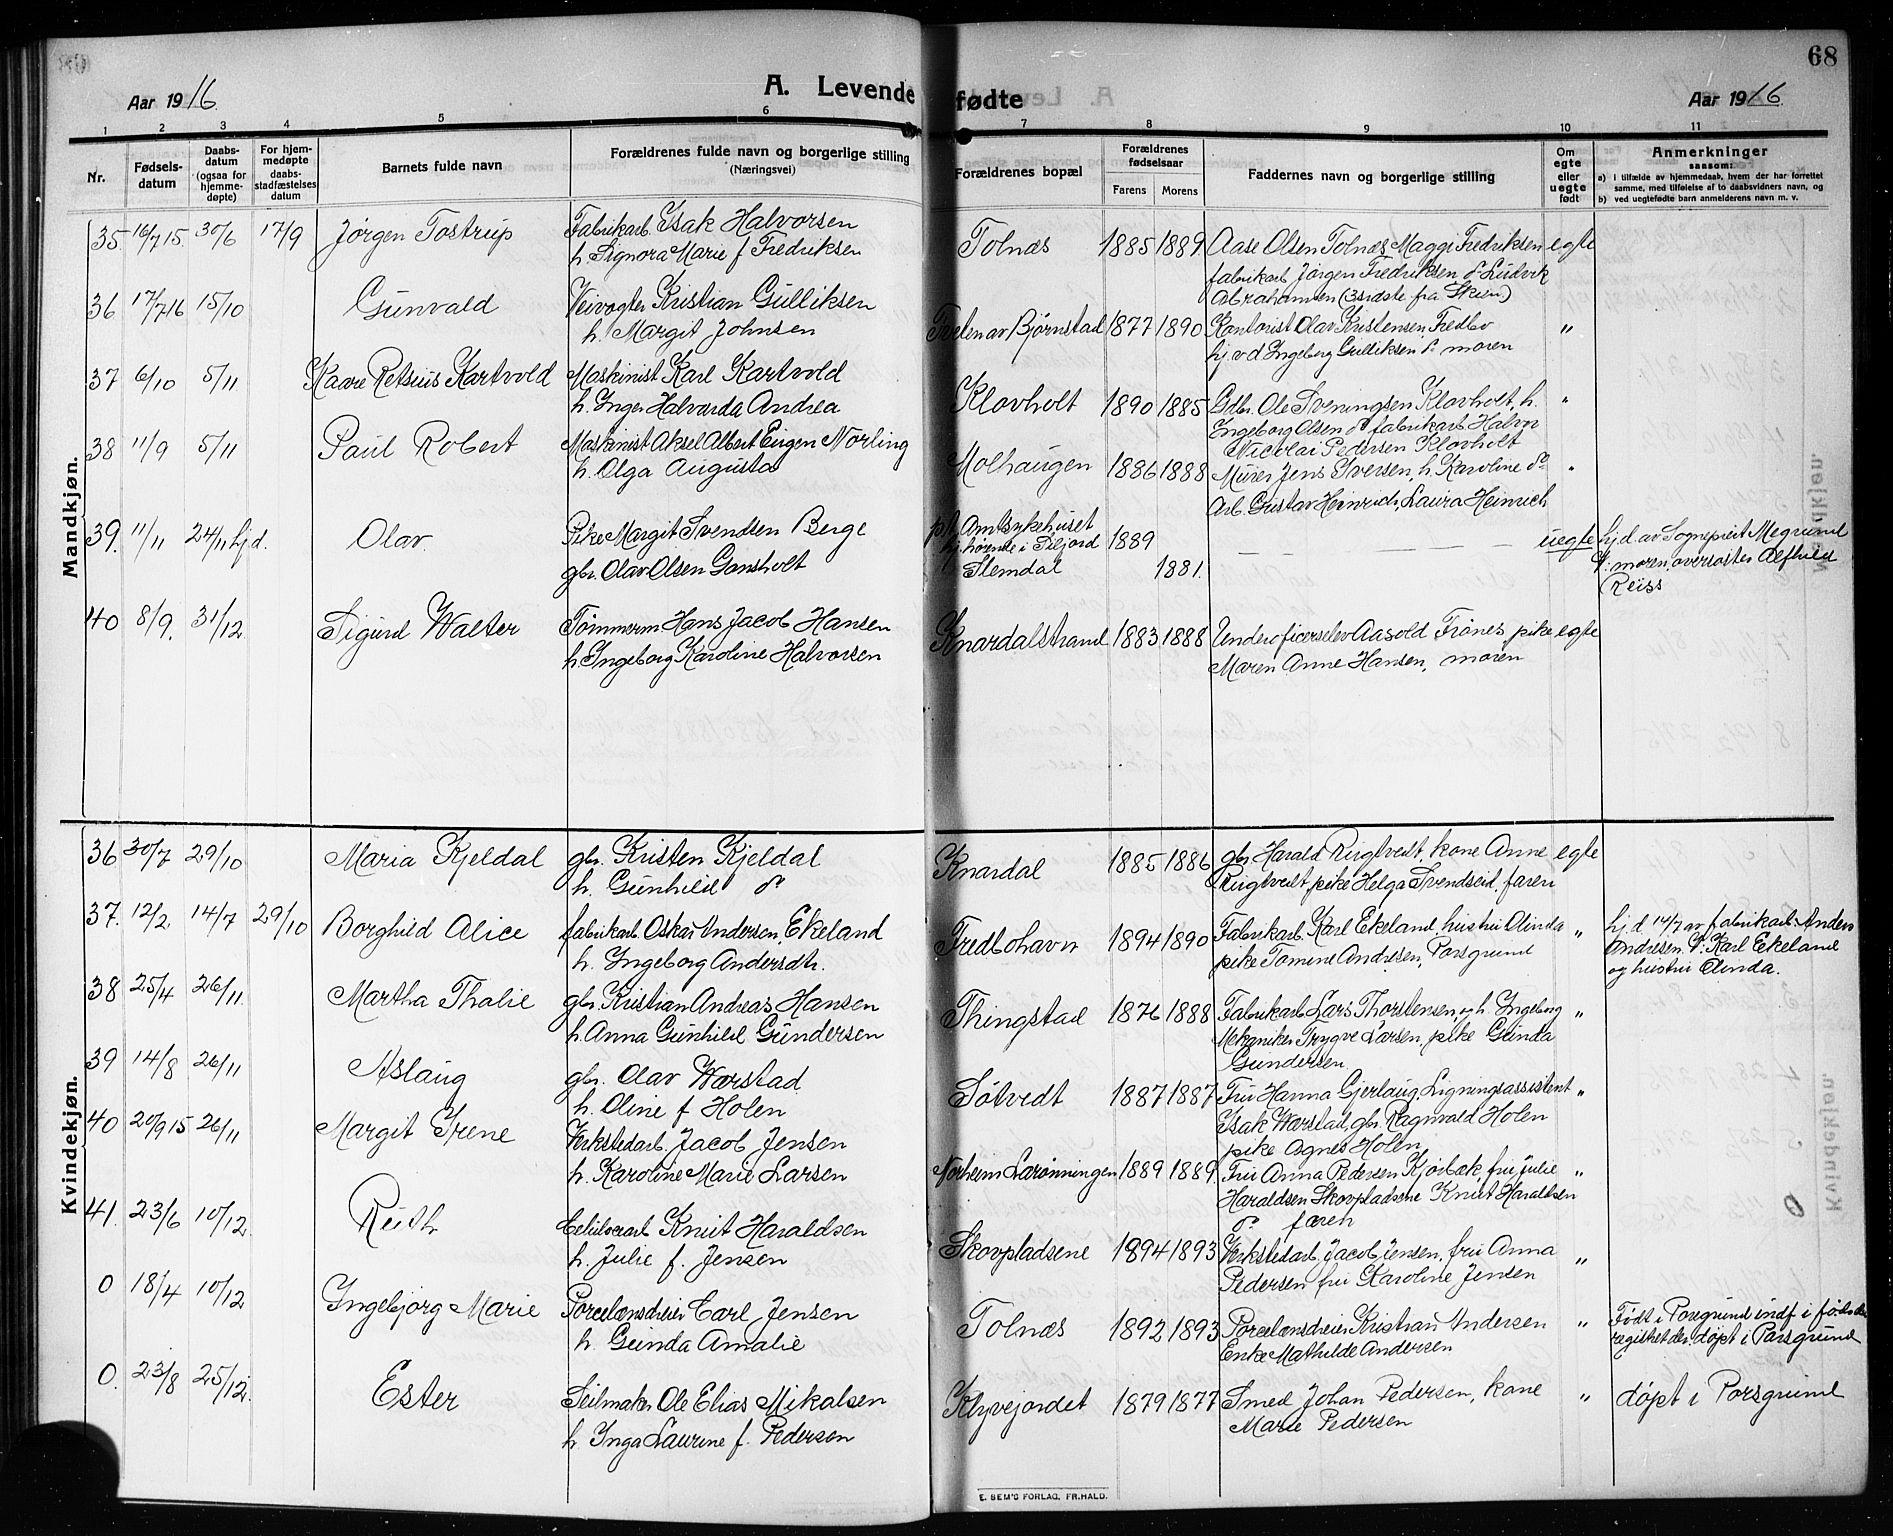 68
Aar 1916
A. Levende fødte
Aar 1916.
1 2 3 4 5 6 7 8 9 10 11
Nr.
Fødsels-
datum
Daabs-
datum
(ogsaa for
hjemme-
døpte)
For hjem-
medøpte
daabs-
stadfæstelses
datum
Barnets fulde navn
Forældrenes fulde navn og borgerlige stilling
(Næringsvei)
Forældrenes bopæl
Forældrenes
fødselsaar
Farens Morens
Faddernes navn og borgerlige stilling
Om
egte
eller
uegte
født
Anmerkninger
saasom:
a) i tilfælde av hjemmedaab, hvem der har forrettet
samme, med tilføielse af to daabsvidners navn, og
b) ved uegtefødte barn anmelderens navn m. v.
Mandkjøn.
35. 16/7 15. 30/6 17/9 Jørgen Tostrup Fabrikarb Isak Halvorsen
h. Signora Marie f Fredriksen
Tolnæs 1885 1889 Aase Olsen Tolnæs Maggi Fredriksen egte
fabrikarb Jørgen Fredriksen & Ludvik
Abrahamsen (3 sidste fra Skien)
36 17/7 16 15/10 Gunvald Veivogter Kristian Gulliksen
h. Margit Johnsen
Tveten av Bjørnstad 1877 1890 Kontorist Olav Kristensen Fredbo "
hj. v d Ingeborg Gulliksen & moren
37 6/10 5/11 Kaare Retsius Kartvold Maskinist Karl Kartvold
h. Inger Halvarda Andrea
Klovholt 1890 1885 Gdbr. Ole Sveningsen Klovholt, h. "
Ingeborg Olsen & fabrikarb Halvor
Nicolai Pedersen Klovholt
38 11/9 5/11 Paul Robert Maskinist Aksel Albert Eugen Norling
h. Olga Augusta
Molhaugen 1886 1888 Murer Jens Iversen, h. Karoline do "
Arb. Gustav Heinrich, Laura Heinrich
39. 11/11 24/11 hjd. Olav. Pike Margit Svendsen Berge
gbr. Olav Olsen Gonsholt
p.t. Amtsykehuset
hj. hørende i Siljord 1889
Slemdal 1881.
uegte hj.d. av Sogneprest Megrund
V: moren, oversøster Alfhild
Reiss
40 8/9. 31/12 Sigurd Walter Tømmerm Hans Jacob Hansen
h Ingeborg Karoline Halvorsen
Knardalstrand 1883 1888 Underoficerselev Aasold Frønes, pike egte
Maren Anne Hansen, moren
Kvindekjøn.
36 30/7 29/10 Maria Kjeldal gbr. Kristen Kjeldal
h. Gunhild do
Knardal 1885 1886 gbr Harald Rugtvedt, kone Anne egte
Rugtvedt, pike Helga Svendseid, faren
37. 12/2 14/7 29/10 Borghild Alice fabrikarb. Oskar Andersen, Ekeland
h. Ingeborg Andersdtr.
Fredbohavn 1894 1890 Fabrikarb. Karl Ekeland, hustru Olinda "
pike Tomine Andresen, Porsgrund
hj.d 14/7 av fabrikarb. Anders
Andresen V: Karl Ekeland
og hustru Olinda.
38 25/4 26/11. Martha Thalie gbr. Kristian Andreas Hansen
h. Anna Gunhild Gundersen
Thingstad 1876 1888 Fabrikarb Lars Thorstensen, og h. Ingeborg "
Mekaniker Trygve Larsen, pike Gunda
Gundersen
39 14/8 26/11 Aslaug gbr. Olav Warstad
h. Oline f Holen
Søtvedt 1887 1887 Fru Hanna Gjerlaug, Ligningsassistent "
Isak Warstad, gbr. Ragnvald Holen
pike Agnes Holen
40 20/9 15 26/11 Margit Irene Verkstedarb. Jacob Jensen
h. Karoline Marie Larsen
Norheim Larønningen 1889 1889. Fru Anna Pedersen Kjørbæk, fru Julie "
Haraldsen Skovpladsene Knut Haraldsen
do faren
41. 23/6 10/12. Ruth Celulosearb Knut Haraldsen
h. Julie f. Jensen
Skovpladsene 1894 1893 Verkstedarb. Jacob Jensen, fru Anna "
Pedersen fru Karoline Jensen
0 18/4 10/12 Ingebjorg Marie Porcelænsdreier Carl Jensen
h Gunda Amalie
Tolnæs 1892 1893 Porcelænsdreier Kristian Andersen "
Enke Mathilde Andersen
Født i Porsgrund indf i føds
registret der. døpt i Porsgrund
0. 23/8 25/12. Ester Seilmaker Ole Elias Mikalsen
h Inga Laurine f. Pedersen
Klyvejordet 1879 1877 Smed Johan Pedersen, kone "
Marie Pedersen
døpt i Porsgrund
E. SEM'S FORLAG, FR.HALD.